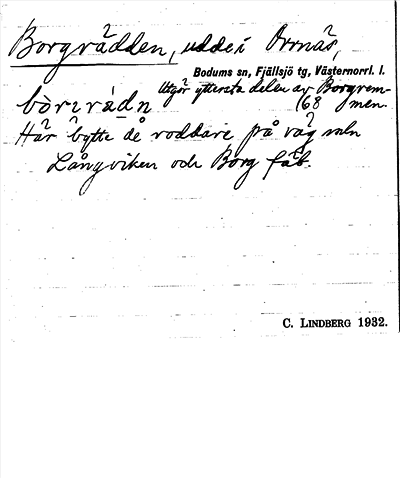 Borgrädden, udde i Orrnäs,
Bodums sn, Fjällsjö tg, Västernorrl. l.
Utgör yttersta delen av Borgrem-
bòrırádn (68 men.
Här bytte de roddare på väg mln
Långviken och Borg fäb.
C. LINDBERG 1932.